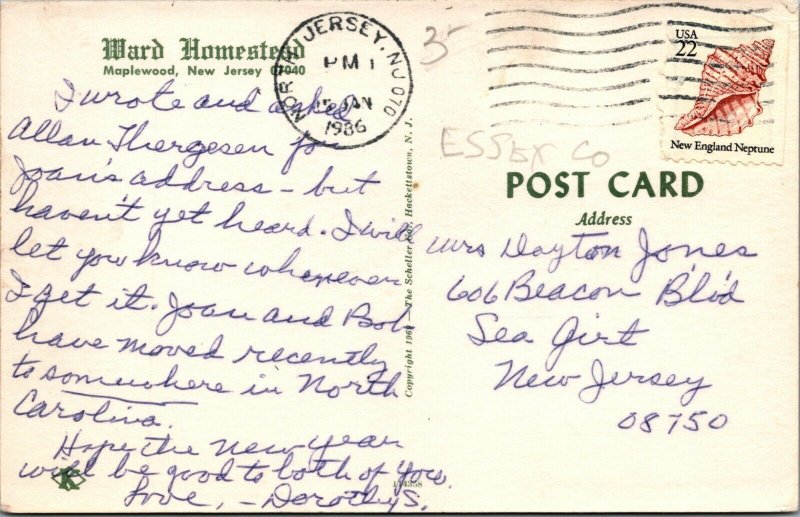 Ward Homestead
Maplewood, New Jersey 07040
NORTH JERSEY, NJ 070
PM
JAN
1986
3-
USA
22
New England Neptune
ESSEX CO
POST CARD
Address
I wrote and asked
Allan Thergesen for
Joan's address - but
haven't yet heard. I will
let you know whenever
I get it. Joan and Bob
have moved recently
to somewhere in North
Carolina.
Hope the New Year
will be good to both of you.
Love, - Dorothy S.
Mrs Dayton Jones
606 Beacon Blvd
Sea Girt
New Jersey
08750
Copyright 1969 — The Scheller Co., Hackettstown, N. J.
K